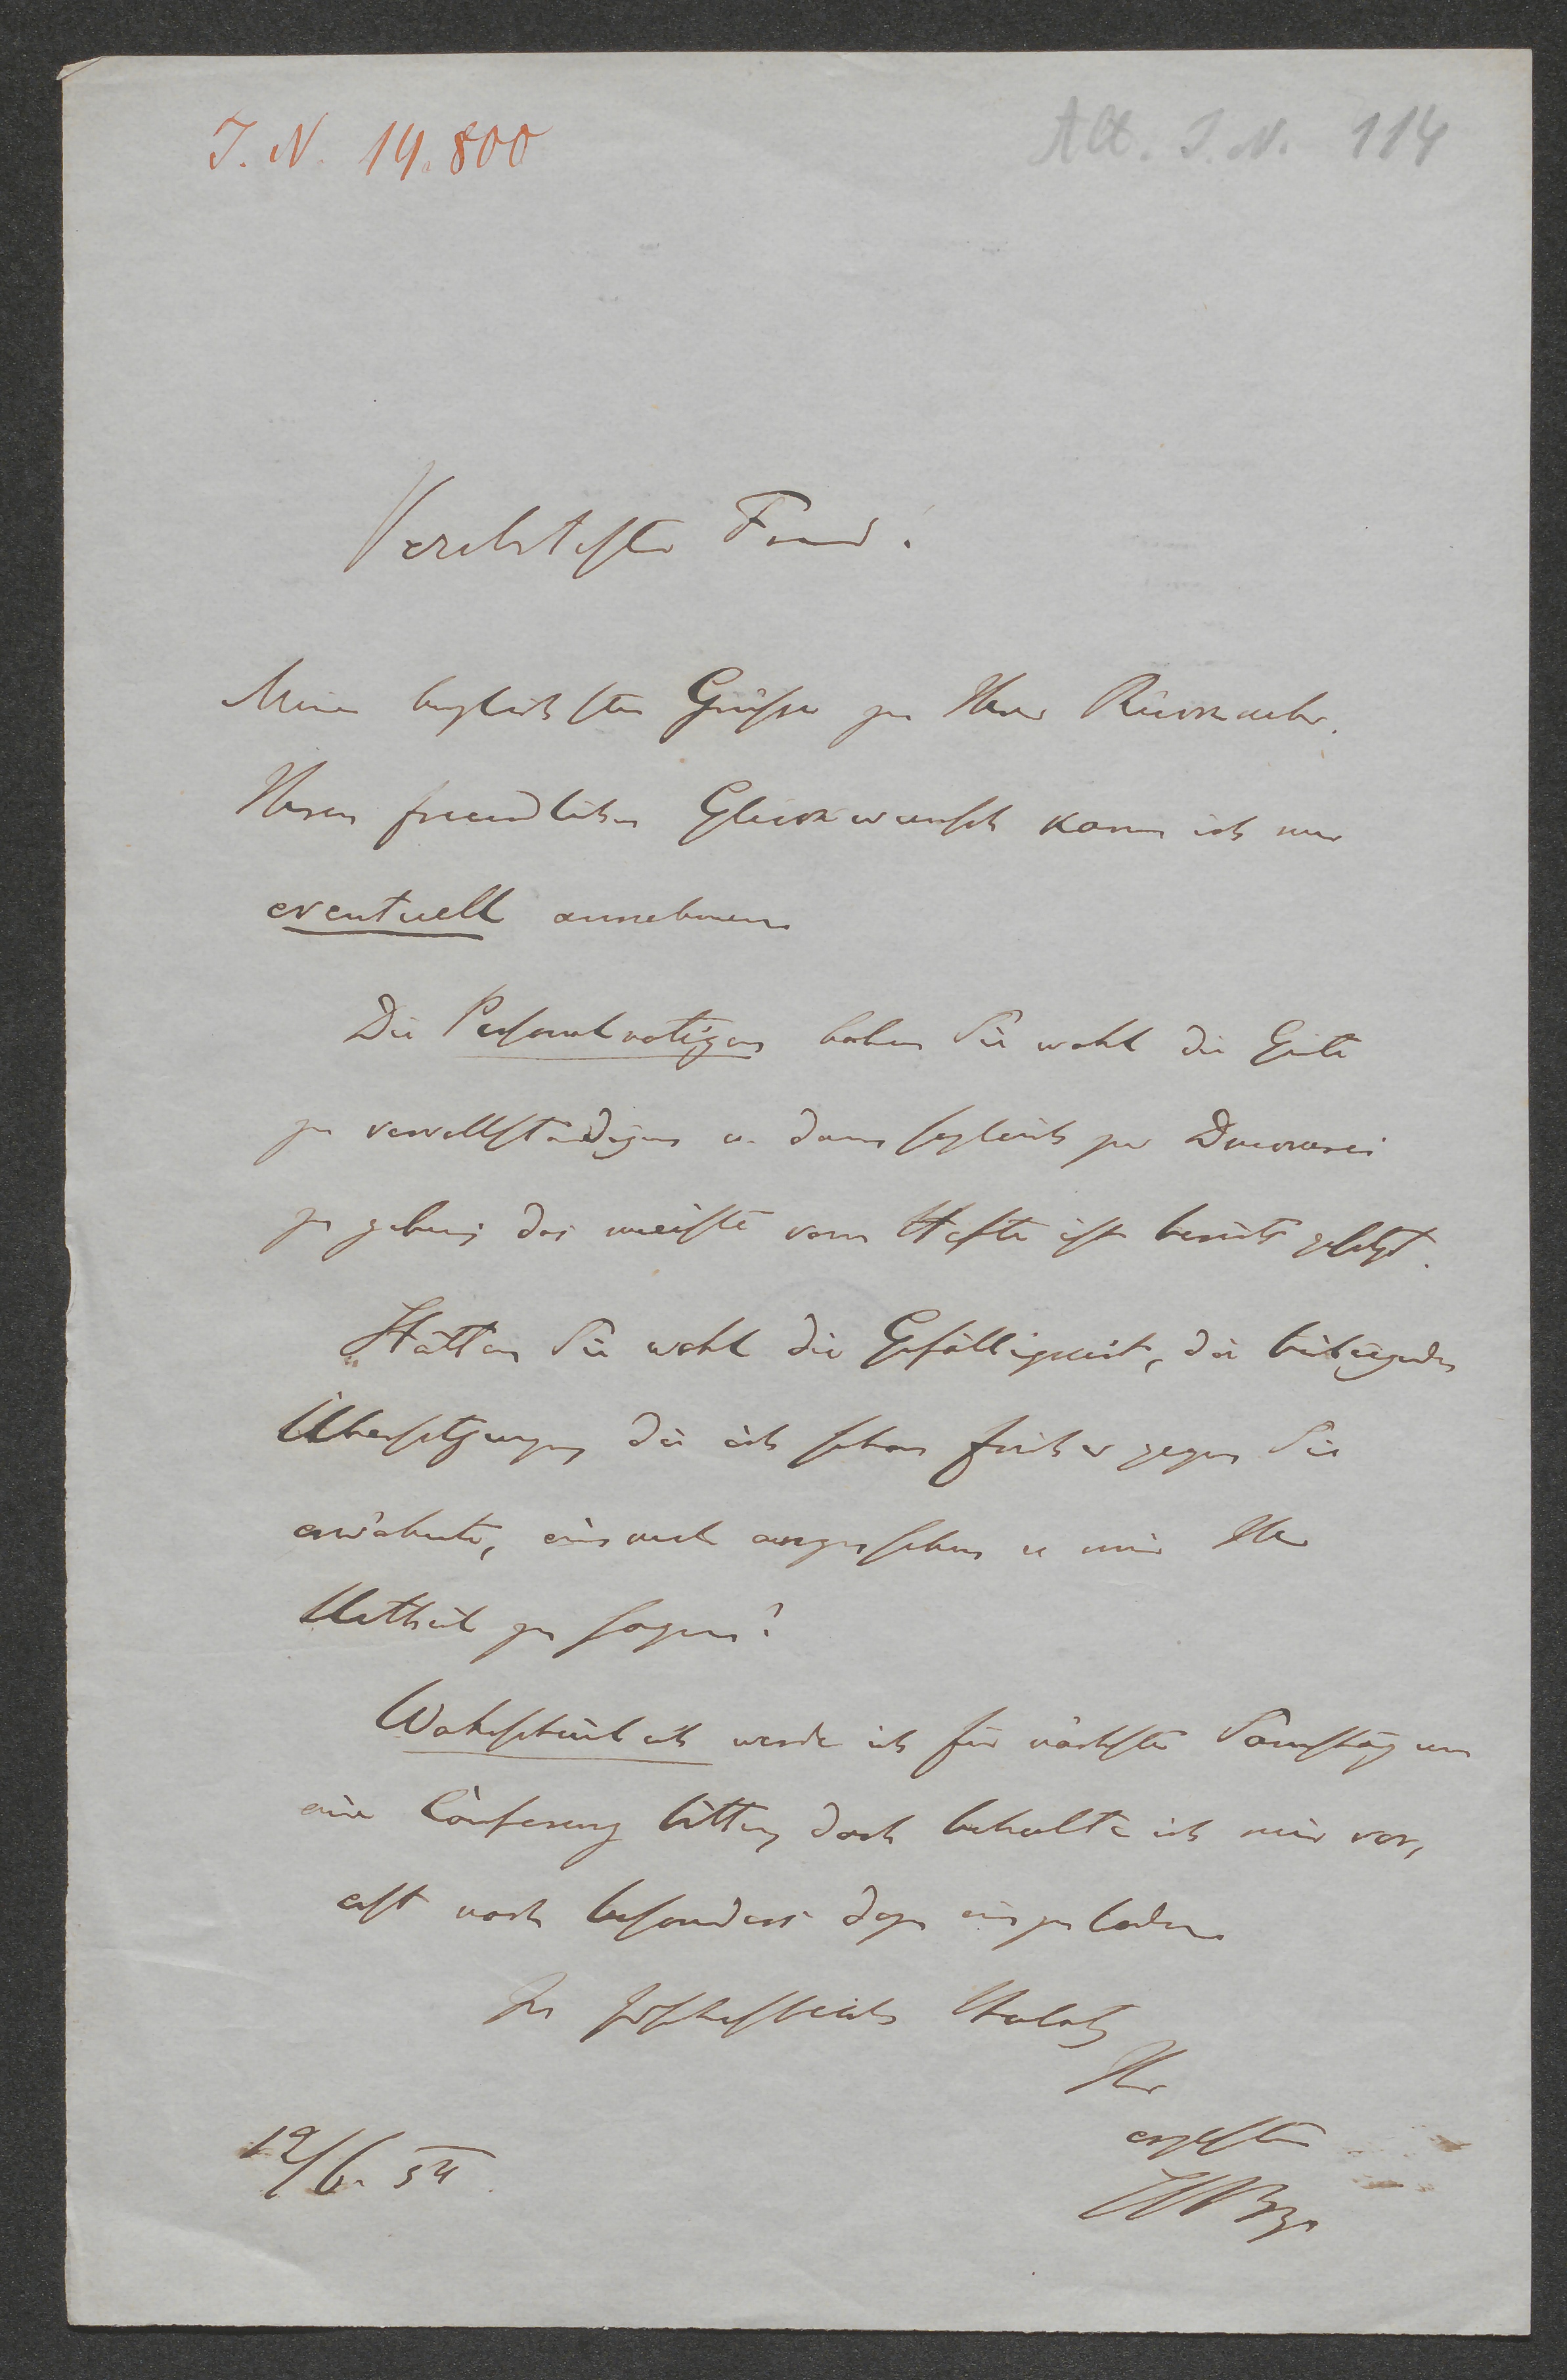 J. N. 14.800
Alt. J. N. 114
Verehrtester Freund!
Meine herzlichsten Grüsse zu Ihrer Rückkehr.
Ihren freundlichen Glückwunsch kann ich nur
eventuell annehmen.
Die Personalnotizen haben Sie wohl die Güte
zu vervollständigen u. dann sogleich zur Druckerei
zu geben; das meiste vom Hefte ist bereits gesetzt.
Hätten Sie wohl die Gefälligkeit, die beiliegenden
Übersetzungen, die ich schon früher gegen Sie
erwähnte, einmal anzusehen u mir Ihr
Urtheil zu sagen?
Wahrscheinlich werde ich für nächsten Samstag um
eine Conferenz bitten, doch behalte ich mir vor,
erst noch besonders dazu einzuladen.
In
Ihr
ergebenster
19/6. 54.